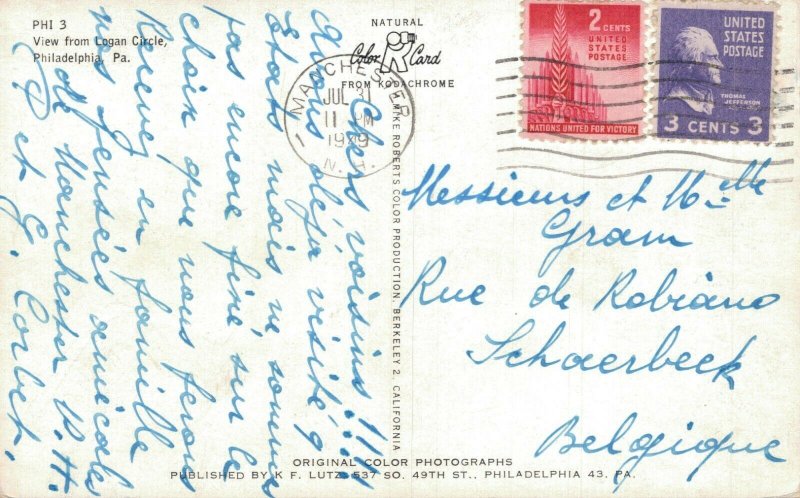 PHI 3
View from Logan Circle,
Philadelphia, Pa.
NATURAL
Color Card
FROM KODACHROME
MANCHESTER
JUL 3
11 PM
1949
N. H.
2 CENTS
UNITED
STATES
POSTAGE
NATIONS UNITED FOR VICTORY
UNITED
STATES
POSTAGE
THOMAS
JEFFERSON
3 CENTS 3
Chers voisins!!!
Avons déjà visité 9
États mais ne sommes
pas encore fixé sur le
choix que nous ferons
Recevez en famille
nos pensées amicales
de Manchester N.H.
P et G. Corbet.
MIKE ROBERTS COLOR PRODUCTION, BERKELEY 2, CALIFORNIA
Messieurs et Melle
Gram
Rue de Robiano
Schaerbeek
Belgique
ORIGINAL COLOR PHOTOGRAPHS
PUBLISHED BY K. F. LUTZ, 537 SO. 49TH ST., PHILADELPHIA 43, PA.